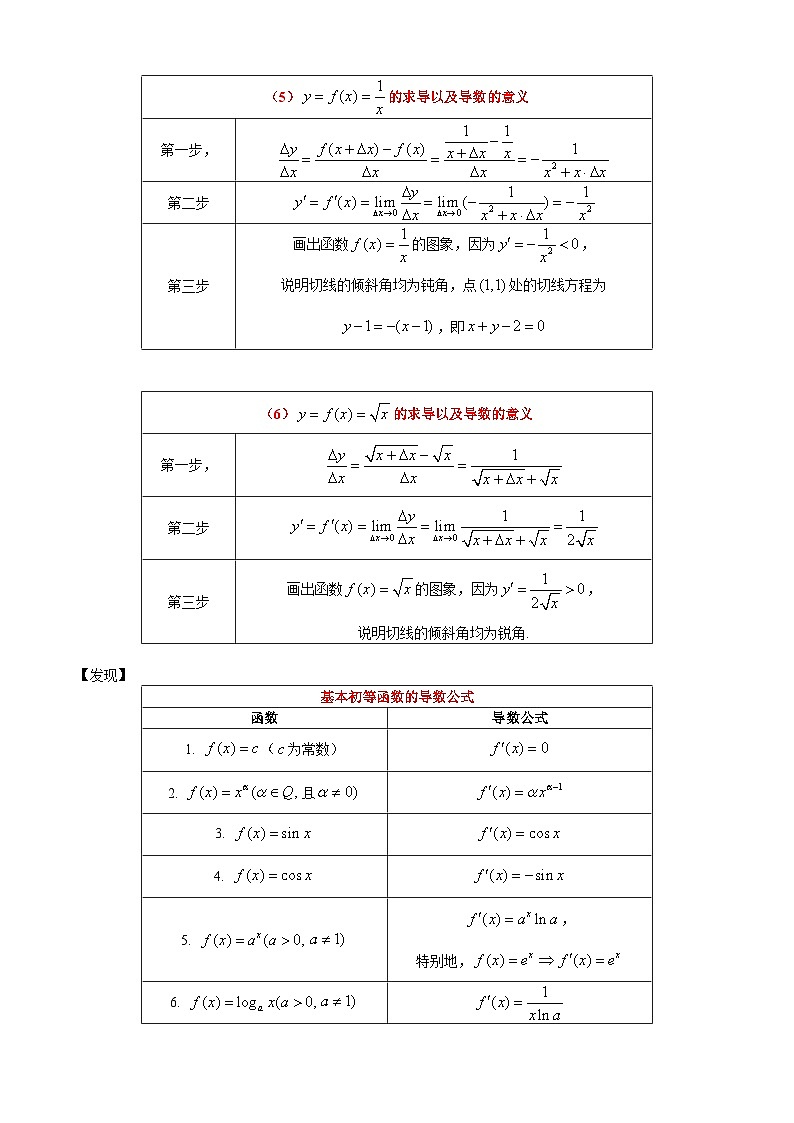 （5）y = f(x) = 1/x 的求导以及导数的意义
第一步， Δy/Δx = (f(x+Δx) − f(x))/Δx = (1/(x+Δx) − 1/x)/Δx = −1/(x²+x·Δx)
第二步 y′ = f′(x) = lim_{Δx→0} Δy/Δx = lim_{Δx→0} (−1/(x²+x·Δx)) = −1/x²
画出函数 f(x) = 1/x 的图象，因为 y′ = −1/x² < 0，
第三步 说明切线的倾斜角均为钝角，点 (1,1) 处的切线方程为
y−1 = −(x−1)，即 x+y−2 = 0
（6）y = f(x) = √x 的求导以及导数的意义
第一步， Δy/Δx = (√(x+Δx) − √x)/Δx = 1/(√(x+Δx) + √x)
第二步 y′ = f′(x) = lim_{Δx→0} Δy/Δx = lim_{Δx→0} 1/(√(x+Δx) + √x) = 1/(2√x)
第三步 画出函数 f(x) = √x 的图象，因为 y′ = 1/(2√x) > 0，
说明切线的倾斜角均为锐角.
【发现】
基本初等函数的导数公式
函数 导数公式
1. f(x) = c（c 为常数） f′(x) = 0
2. f(x) = x^α (α∈Q, 且 α≠0) f′(x) = αx^(α−1)
3. f(x) = sin x f′(x) = cos x
4. f(x) = cos x f′(x) = −sin x
5. f(x) = a^x (a>0, a≠1) f′(x) = a^x ln a，
特别地，f(x) = e^x ⇒ f′(x) = e^x
6. f(x) = log_a x(a>0, a≠1) f′(x) = 1/(x ln a)